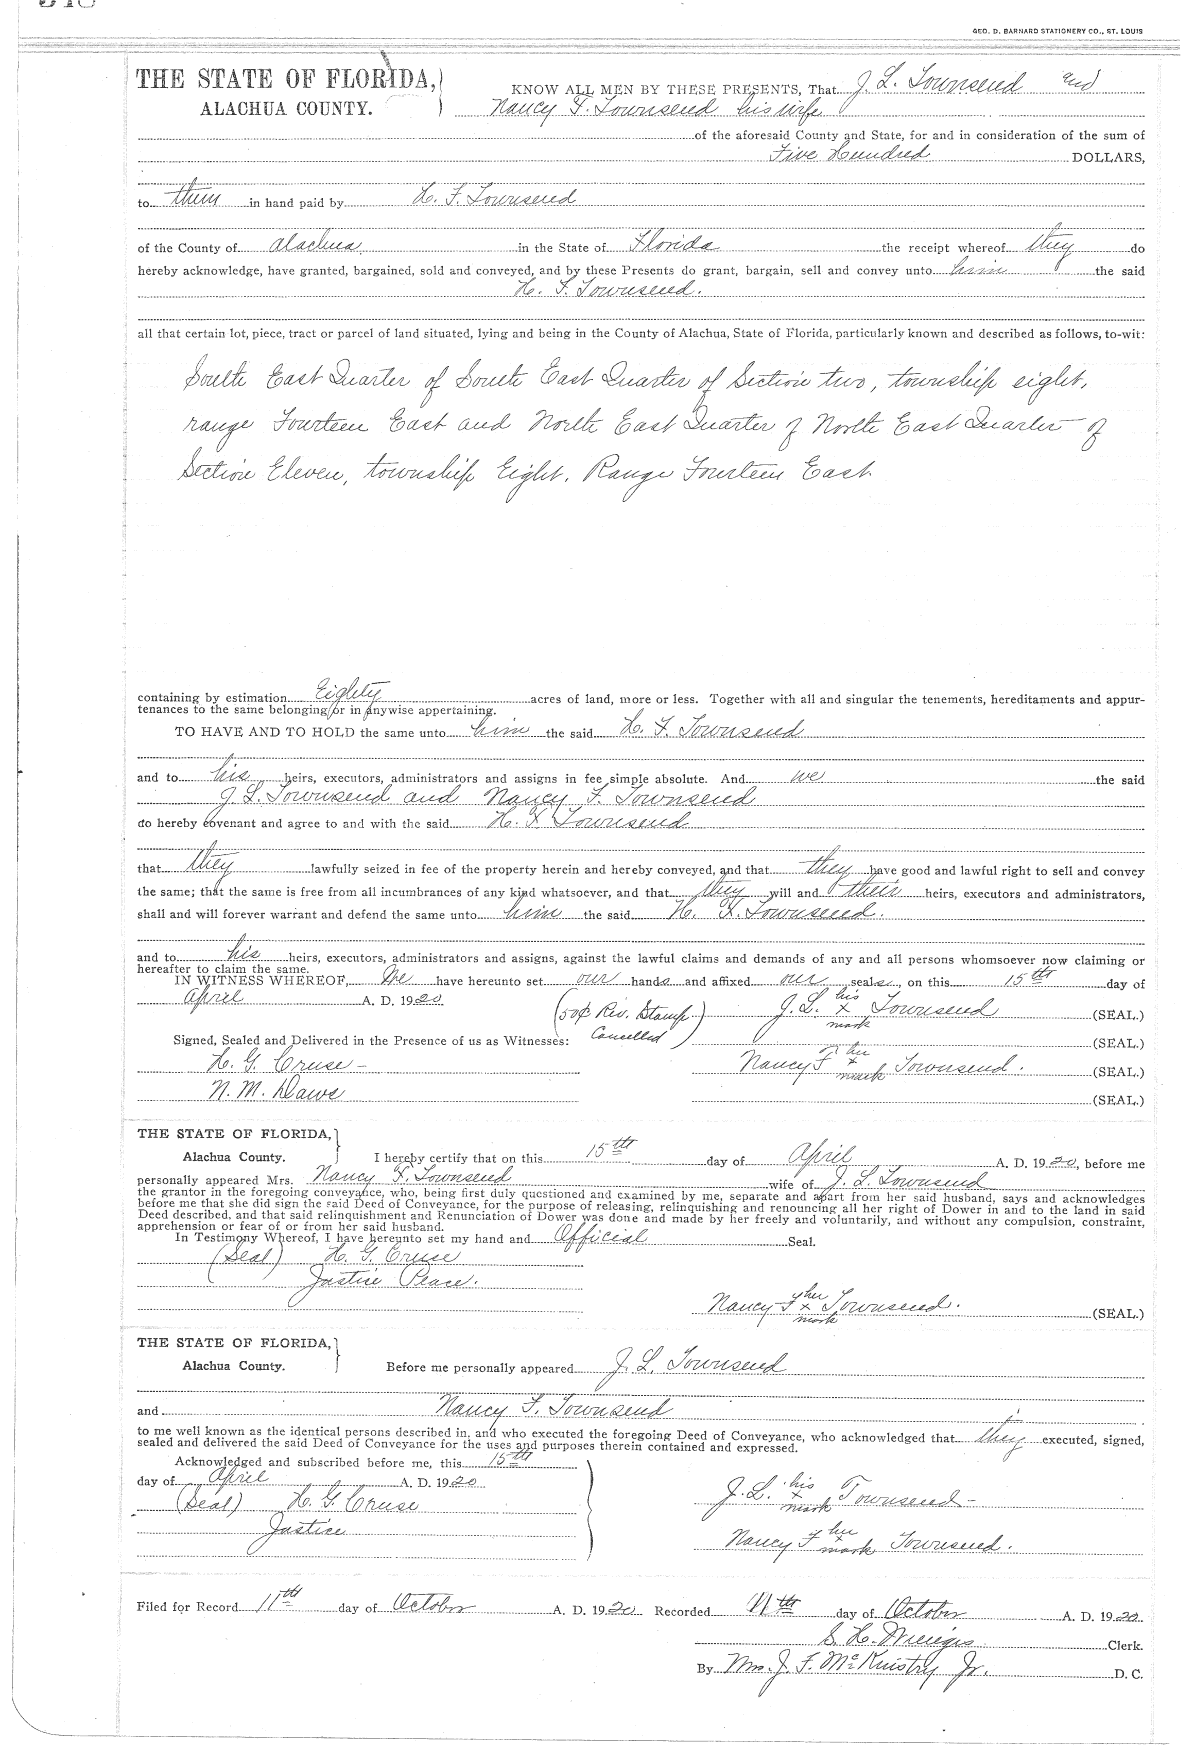 GEO. D. BARNARD STATIONERY CO., ST. LOUIS
THE STATE OF FLORIDA,
ALACHUA COUNTY.
KNOW ALL MEN BY THESE PRESENTS, That J. L. Townsend and
Nancy F. Townsend his wife
of the aforesaid County and State, for and in consideration of the sum of
Five Hundred DOLLARS,
to them in hand paid by H. F. Townsend
of the County of Alachua, in the State of Florida the receipt whereof they do
hereby acknowledge, have granted, bargained, sold and conveyed, and by these Presents do grant, bargain, sell and convey unto him the said
H. F. Townsend.
all that certain lot, piece, tract or parcel of land situated, lying and being in the County of Alachua, State of Florida, particularly known and described as follows, to-wit:
South East Quarter of South East Quarter of Section two, township eight,
range Fourteen East and North East Quarter of North East Quarter of
Section Eleven, township Eight, Range Fourteen East.
containing by estimation Eighty acres of land, more or less. Together with all and singular the tenements, hereditaments and appur-
tenances to the same belonging or in anywise appertaining.
TO HAVE AND TO HOLD the same unto him the said H. F. Townsend
and to his heirs, executors, administrators and assigns in fee simple absolute. And we the said
J. L. Townsend and Nancy F. Townsend
do hereby covenant and agree to and with the said H. F. Townsend
that they lawfully seized in fee of the property herein and hereby conveyed, and that they have good and lawful right to sell and convey
the same; that the same is free from all incumbrances of any kind whatsoever, and that they will and their heirs, executors and administrators,
shall and will forever warrant and defend the same unto him the said H. F. Townsend.
and to his heirs, executors, administrators and assigns, against the lawful claims and demands of any and all persons whomsoever now claiming or
hereafter to claim the same.
IN WITNESS WHEREOF, We have hereunto set our hands and affixed our seals, on this 15th day of
April A. D. 1920 (50¢ Rev. Stamp Cancelled) J. L. his x mark Townsend (SEAL.)
Signed, Sealed and Delivered in the Presence of us as Witnesses: (SEAL.)
H. G. Cruse - Nancy F her x mark Townsend. (SEAL.)
N. M. Daws (SEAL.)
THE STATE OF FLORIDA,
Alachua County. I hereby certify that on this 15th day of April A. D. 1920, before me
personally appeared Mrs. Nancy F. Townsend wife of J. L. Townsend
the grantor in the foregoing conveyance, who, being first duly questioned and examined by me, separate and apart from her said husband, says and acknowledges
before me that she did sign the said Deed of Conveyance, for the purpose of releasing, relinquishing and renouncing all her right of Dower in and to the land in said
Deed described, and that said relinquishment and Renunciation of Dower was done and made by her freely and voluntarily, and without any compulsion, constraint,
apprehension or fear of or from her said husband.
In Testimony Whereof, I have hereunto set my hand and Official Seal.
(Seal) H. G. Cruse
Justice Peace.
Nancy F her x mark Townsend. (SEAL.)
THE STATE OF FLORIDA,
Alachua County. Before me personally appeared J. L. Townsend
and Nancy F. Townsend
to me well known as the identical persons described in, and who executed the foregoing Deed of Conveyance, who acknowledged that they executed, signed,
sealed and delivered the said Deed of Conveyance for the uses and purposes therein contained and expressed.
Acknowledged and subscribed before me, this 15th
day of April A. D. 1920
(Seal) H. G. Cruse J. L. his x mark Townsend -
Justice Nancy F her x mark Townsend.
Filed for Record 11th day of October A. D. 1920 Recorded 11th day of October A. D. 1920
S. H. Wienges Clerk.
By Mrs. J. F. McKinstry Jr. D. C.